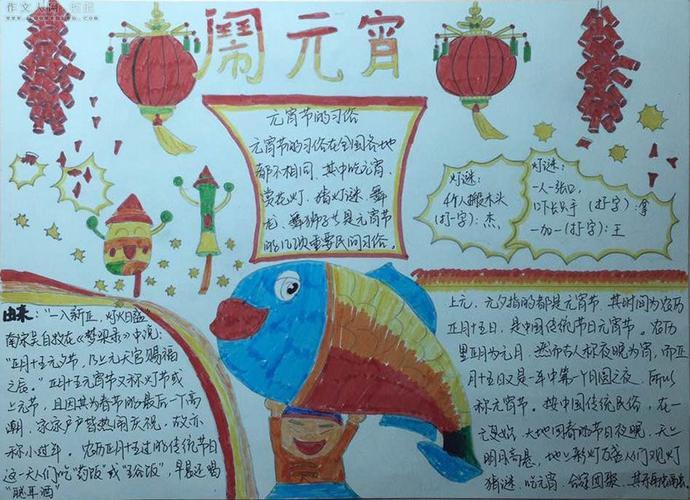 作文人网
闹元宵
元宵节的习俗
元宵节的习俗在全国各地
都不相同，其中吃元宵、
赏花灯、猜灯谜、舞
龙、舞狮子等是元宵节
的几项重要民间习俗。
灯谜：
个人搬木头
(打一字)：杰，
灯谜：
一人一张口，
口下长只手 (打一字)：拿
一加一(打一字)：王
由来："一入新正，灯火日盛
南宋吴自牧在《梦梁录》中说：
"正月十五元夕节，乃上元天官赐福
之辰。"正月十五元宵节又称灯节或
上元节，且因其为春节的最后一个高
潮，家家户户皆热闹庆祝，故亦
称小过年。农历正月十五过的传统节日
这一天人们吃"药饭"或"五谷饭"，早晨还喝
"聪耳酒"
上元、元夕指的都是元宵节，其时间为农历
正月十五日，是中国传统节日元宵节。农历
里正月为元月，然而古人称夜晚为宵，而正
月十五日又是一年中第一个月圆之夜，所以
称元宵节。按中国传统民俗，在一
元复始，大地回春的节日夜晚，天上
明月高悬，地上彩灯万盏，人们观灯
猜谜、吃元宵、合家团聚、其